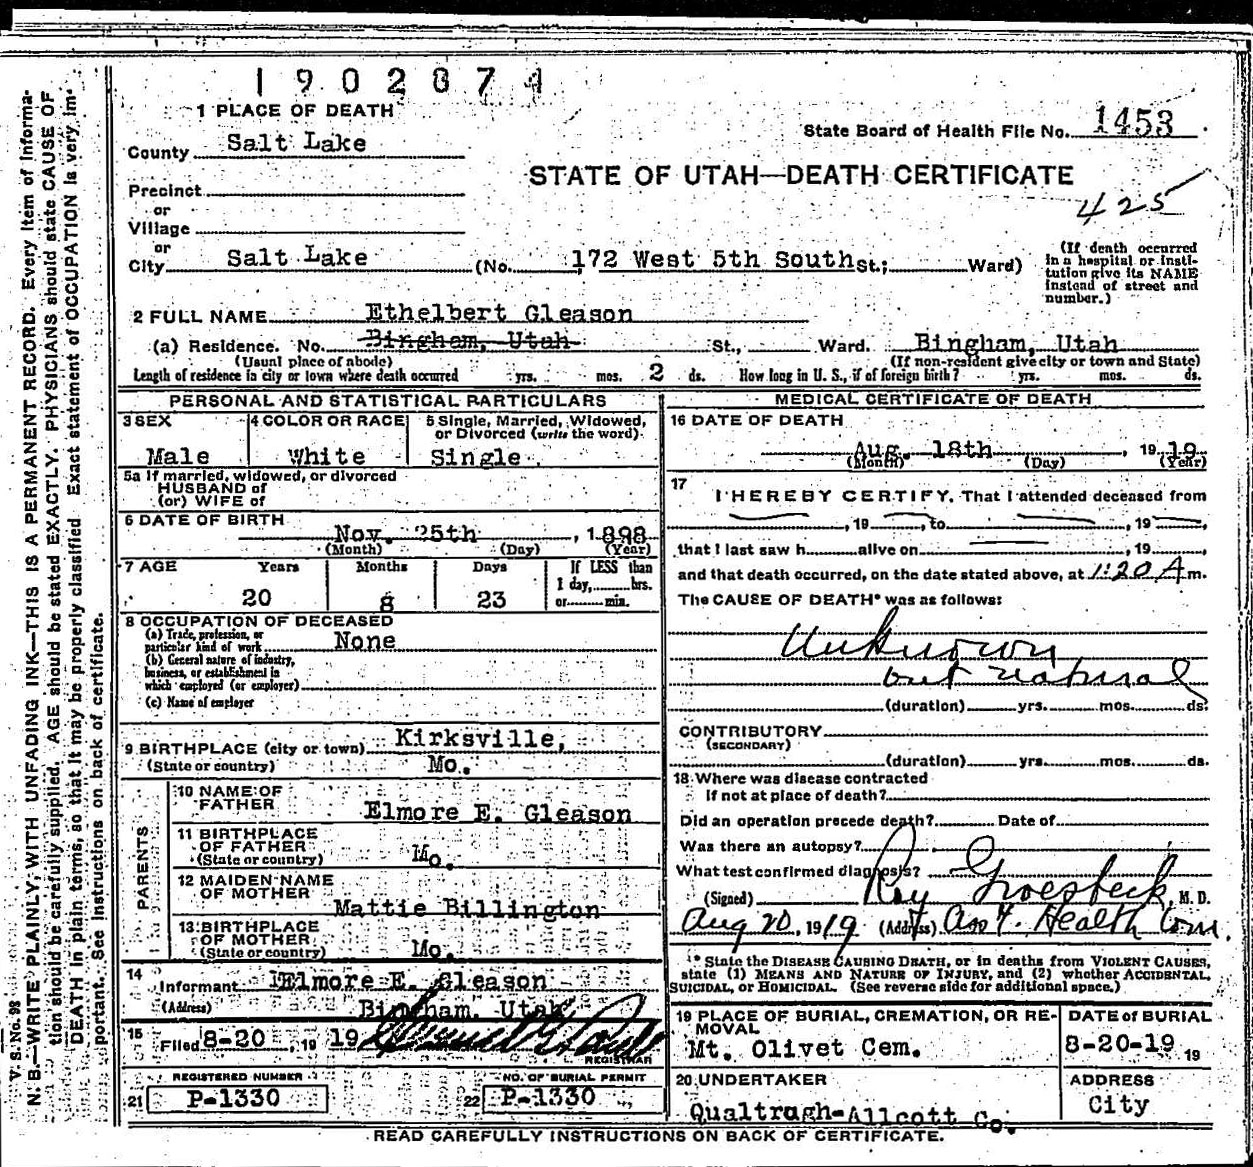 1902074
1 PLACE OF DEATH
State Board of Health File No. 1453
County Salt Lake
STATE OF UTAH—DEATH CERTIFICATE
425
Precinct
or
Village
or
City Salt Lake (No. 172 West 5th South St.; Ward)
(If death occurred
in a hospital or insti-
tution give its NAME
instead of street and
number.)
2 FULL NAME Ethelbert Gleason
(a) Residence. No. Bingham, Utah St., Ward. Bingham, Utah
(Usual place of abode) (If non-resident give city or town and State)
Length of residence in city or town where death occurred yrs. mos. 2 ds. How long in U. S., if of foreign birth? yrs. mos. ds.
PERSONAL AND STATISTICAL PARTICULARS
3 SEX
Male
4 COLOR OR RACE
White
5 Single, Married, Widowed,
or Divorced (write the word)
Single
5a If married, widowed, or divorced
HUSBAND of
(or) WIFE of
6 DATE OF BIRTH
Nov. 25th, 1898
(Month) (Day) (Year)
7 AGE Years Months Days If LESS than
1 day, hrs.
or min.
20 8 23
8 OCCUPATION OF DECEASED
(a) Trade, profession, or
particular kind of work None
(b) General nature of industry,
business, or establishment in
which employed (or employer)
(c) Name of employer
9 BIRTHPLACE (city or town) Kirksville,
(State or country) Mo.
PARENTS
10 NAME OF
FATHER Elmore E. Gleason
11 BIRTHPLACE
OF FATHER
(State or country) Mo.
12 MAIDEN NAME
OF MOTHER
Mattie Billington
13 BIRTHPLACE
OF MOTHER
(State or country) Mo.
14
Informant Elmore E. Gleason
(Address) Bingham, Utah
15
Filed 8-20, 19 19
REGISTRAR
REGISTERED NUMBER
21 P-1330
NO. OF BURIAL PERMIT
22 P-1330
MEDICAL CERTIFICATE OF DEATH
16 DATE OF DEATH
Aug. 18th, 19 19
(Month) (Day) (Year)
17
I HEREBY CERTIFY, That I attended deceased from
, 19 , to , 19 ,
that I last saw h alive on , 19 ,
and that death occurred, on the date stated above, at 1:20 A m.
The CAUSE OF DEATH* was as follows:
Unknown
but natural
(duration) yrs. mos. ds.
CONTRIBUTORY
(SECONDARY)
(duration) yrs. mos. ds.
18 Where was disease contracted
If not at place of death?
Did an operation precede death? Date of
Was there an autopsy?
What test confirmed diagnosis?
(Signed) Roy Groesbeck, M. D.
Aug 20, 1919 (Address) Ass't. Health Com.
* State the DISEASE CAUSING DEATH, or in deaths from VIOLENT CAUSES,
state (1) MEANS AND NATURE OF INJURY, and (2) whether ACCIDENTAL,
SUICIDAL, or HOMICIDAL. (See reverse side for additional space.)
19 PLACE OF BURIAL, CREMATION, OR RE-
MOVAL
Mt. Olivet Cem.
DATE of BURIAL
8-20-19 19
20 UNDERTAKER
Qualtrugh-Allcott Co.
ADDRESS
City
READ CAREFULLY INSTRUCTIONS ON BACK OF CERTIFICATE.
V. S. No. 98
N. B.—WRITE PLAINLY, WITH UNFADING INK—THIS IS A PERMANENT RECORD. Every item of informa-
tion should be carefully supplied. AGE should be stated EXACTLY. PHYSICIANS should state CAUSE OF
DEATH in plain terms, so that it may be properly classified. Exact statement of OCCUPATION is very im-
portant. See instructions on back of certificate.